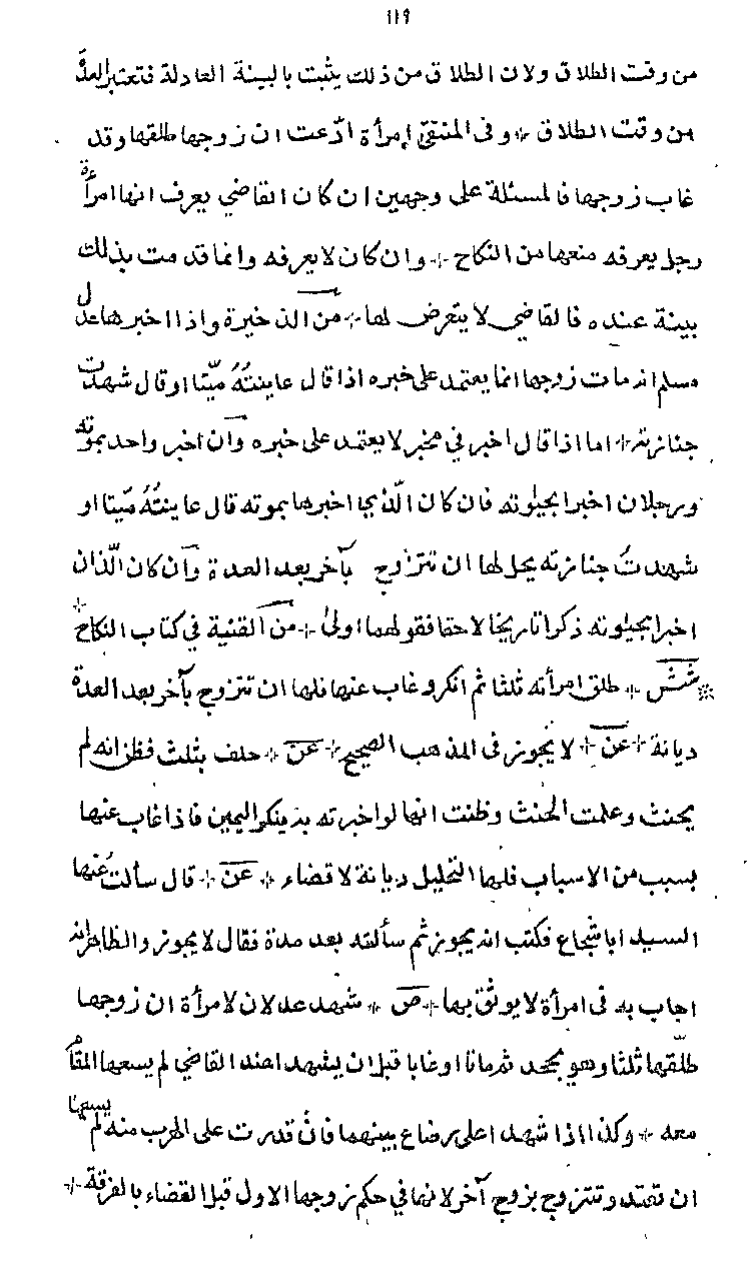 ١١٩
من وقت الطلاق ولان الطلاق من ذلك يثبت بالبينة العادلة فتعتبر العدة
من وقت الطلاق * وفى المنتقى إمرأة ادّعت ان زوجها طلقها وقد
غاب زوجها فالمسئلة على وجهين ان كان القاضي يعرف انها امرأة
رجل يعرفه منعها من النكاح * وان كان لا يعرفه وانما قدمت بذلك
بينة عنده فالقاضي لا يتعرض لها * من الذخيرة واذا اخبرها عدل
مسلم انه مات زوجها انما يعتمد على خبره اذا قال عاينتُهُ ميّتا او قال شهدت
جنازته * اما اذا قال اخبرني مخبر لا يعتمد على خبره وان اخبر واحد بموته
ورجلان اخبرا بحيٰوته فان كان الّذي اخبرها بموته قال عاينتُهُ ميّتا او
شهدتُ جنازته يحل لها ان تتزوج بآخر بعد العدة وان كان الّذان
اخبرا بحيٰوته ذكرا تاريخا لاحقا فقولهما اولىٰ * من القنية في كتاب النكاح *
* شش * طلق امرأته ثلثا ثم انكر وغاب عنها فلها ان تتزوج بآخر بعد العدة
ديانة * عن * لا يجوز فى المذهب الصحيح * عن * حلف بثلث فظن انه لم
يحنث وعلمت الحنث وظنت انها لو اخبرته بذ ينكر اليمين فاذا غاب عنها
بسبب من الاسباب فلها التحليل ديانة لا قضاء * عن * قال سألت عنها
السيد ابا شجاع فكتب انه يجوز ثم سألته بعد مدة فقال لا يجوز والظاهر انه
اجاب به فى امرأة لا يوثق بها * ص * شهد عدلان لامرأة ان زوجها
طلّقها ثلثا وهو يجحد ثم ماتا او غابا قبل ان يشهدا عند القاضي لم يسعها المقام
معه * وكذا اذا شهدا على رضاع بينهما فان قدرت على الهرب منه لم يسعها
ان تعتد وتتزوج بزوج آخر لانها في حكم زوجها الاول قبل القضاء بالفرقة *